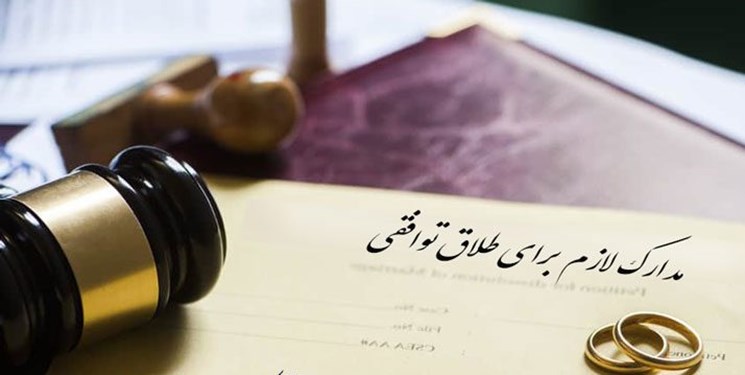 مدارک لازم برای طلاق توافقی
Petition for dissolution of Marriage
Case No. :
File No. :
CSEA AA# :